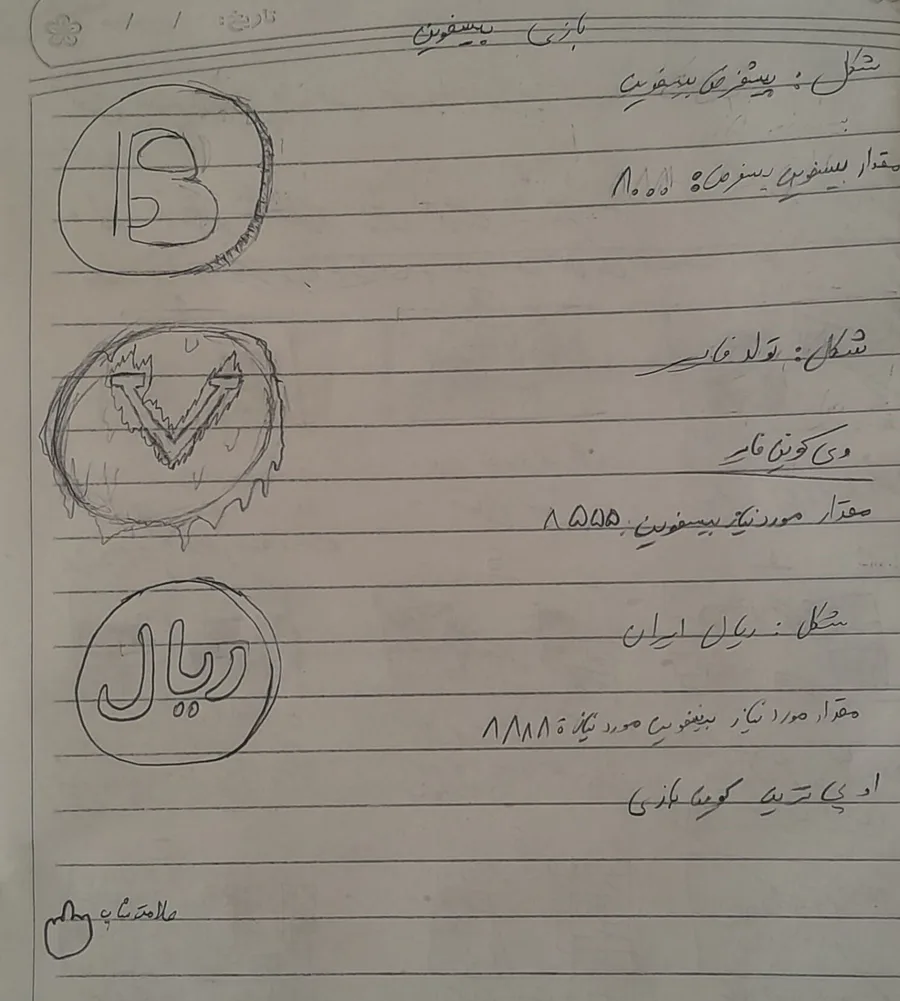 تاریخ: / /
بازی بیسفوین
شکل: پیشفرض بیسفوین
B
مقدار بیسفوین پیسفرض: ۸۰۰۰
شکل: تولد فایر
V
وی کوین فایر
مقدار مورد نیاز بیسفوین: ۸۵۵۵
شکل: ریال ایران
ریال
مقدار مورد نیاز بیسفوین مورد نیاز: ۸۸۸۸
او پی ترین کوین بازی
علامت تاپ